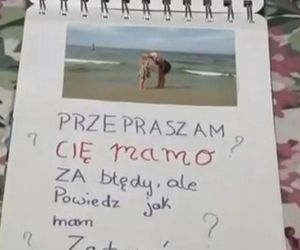 PRZEPRASZAM
CIĘ mamo ?
? ZA błędy, ale
Powiedz jak
mam ?
?